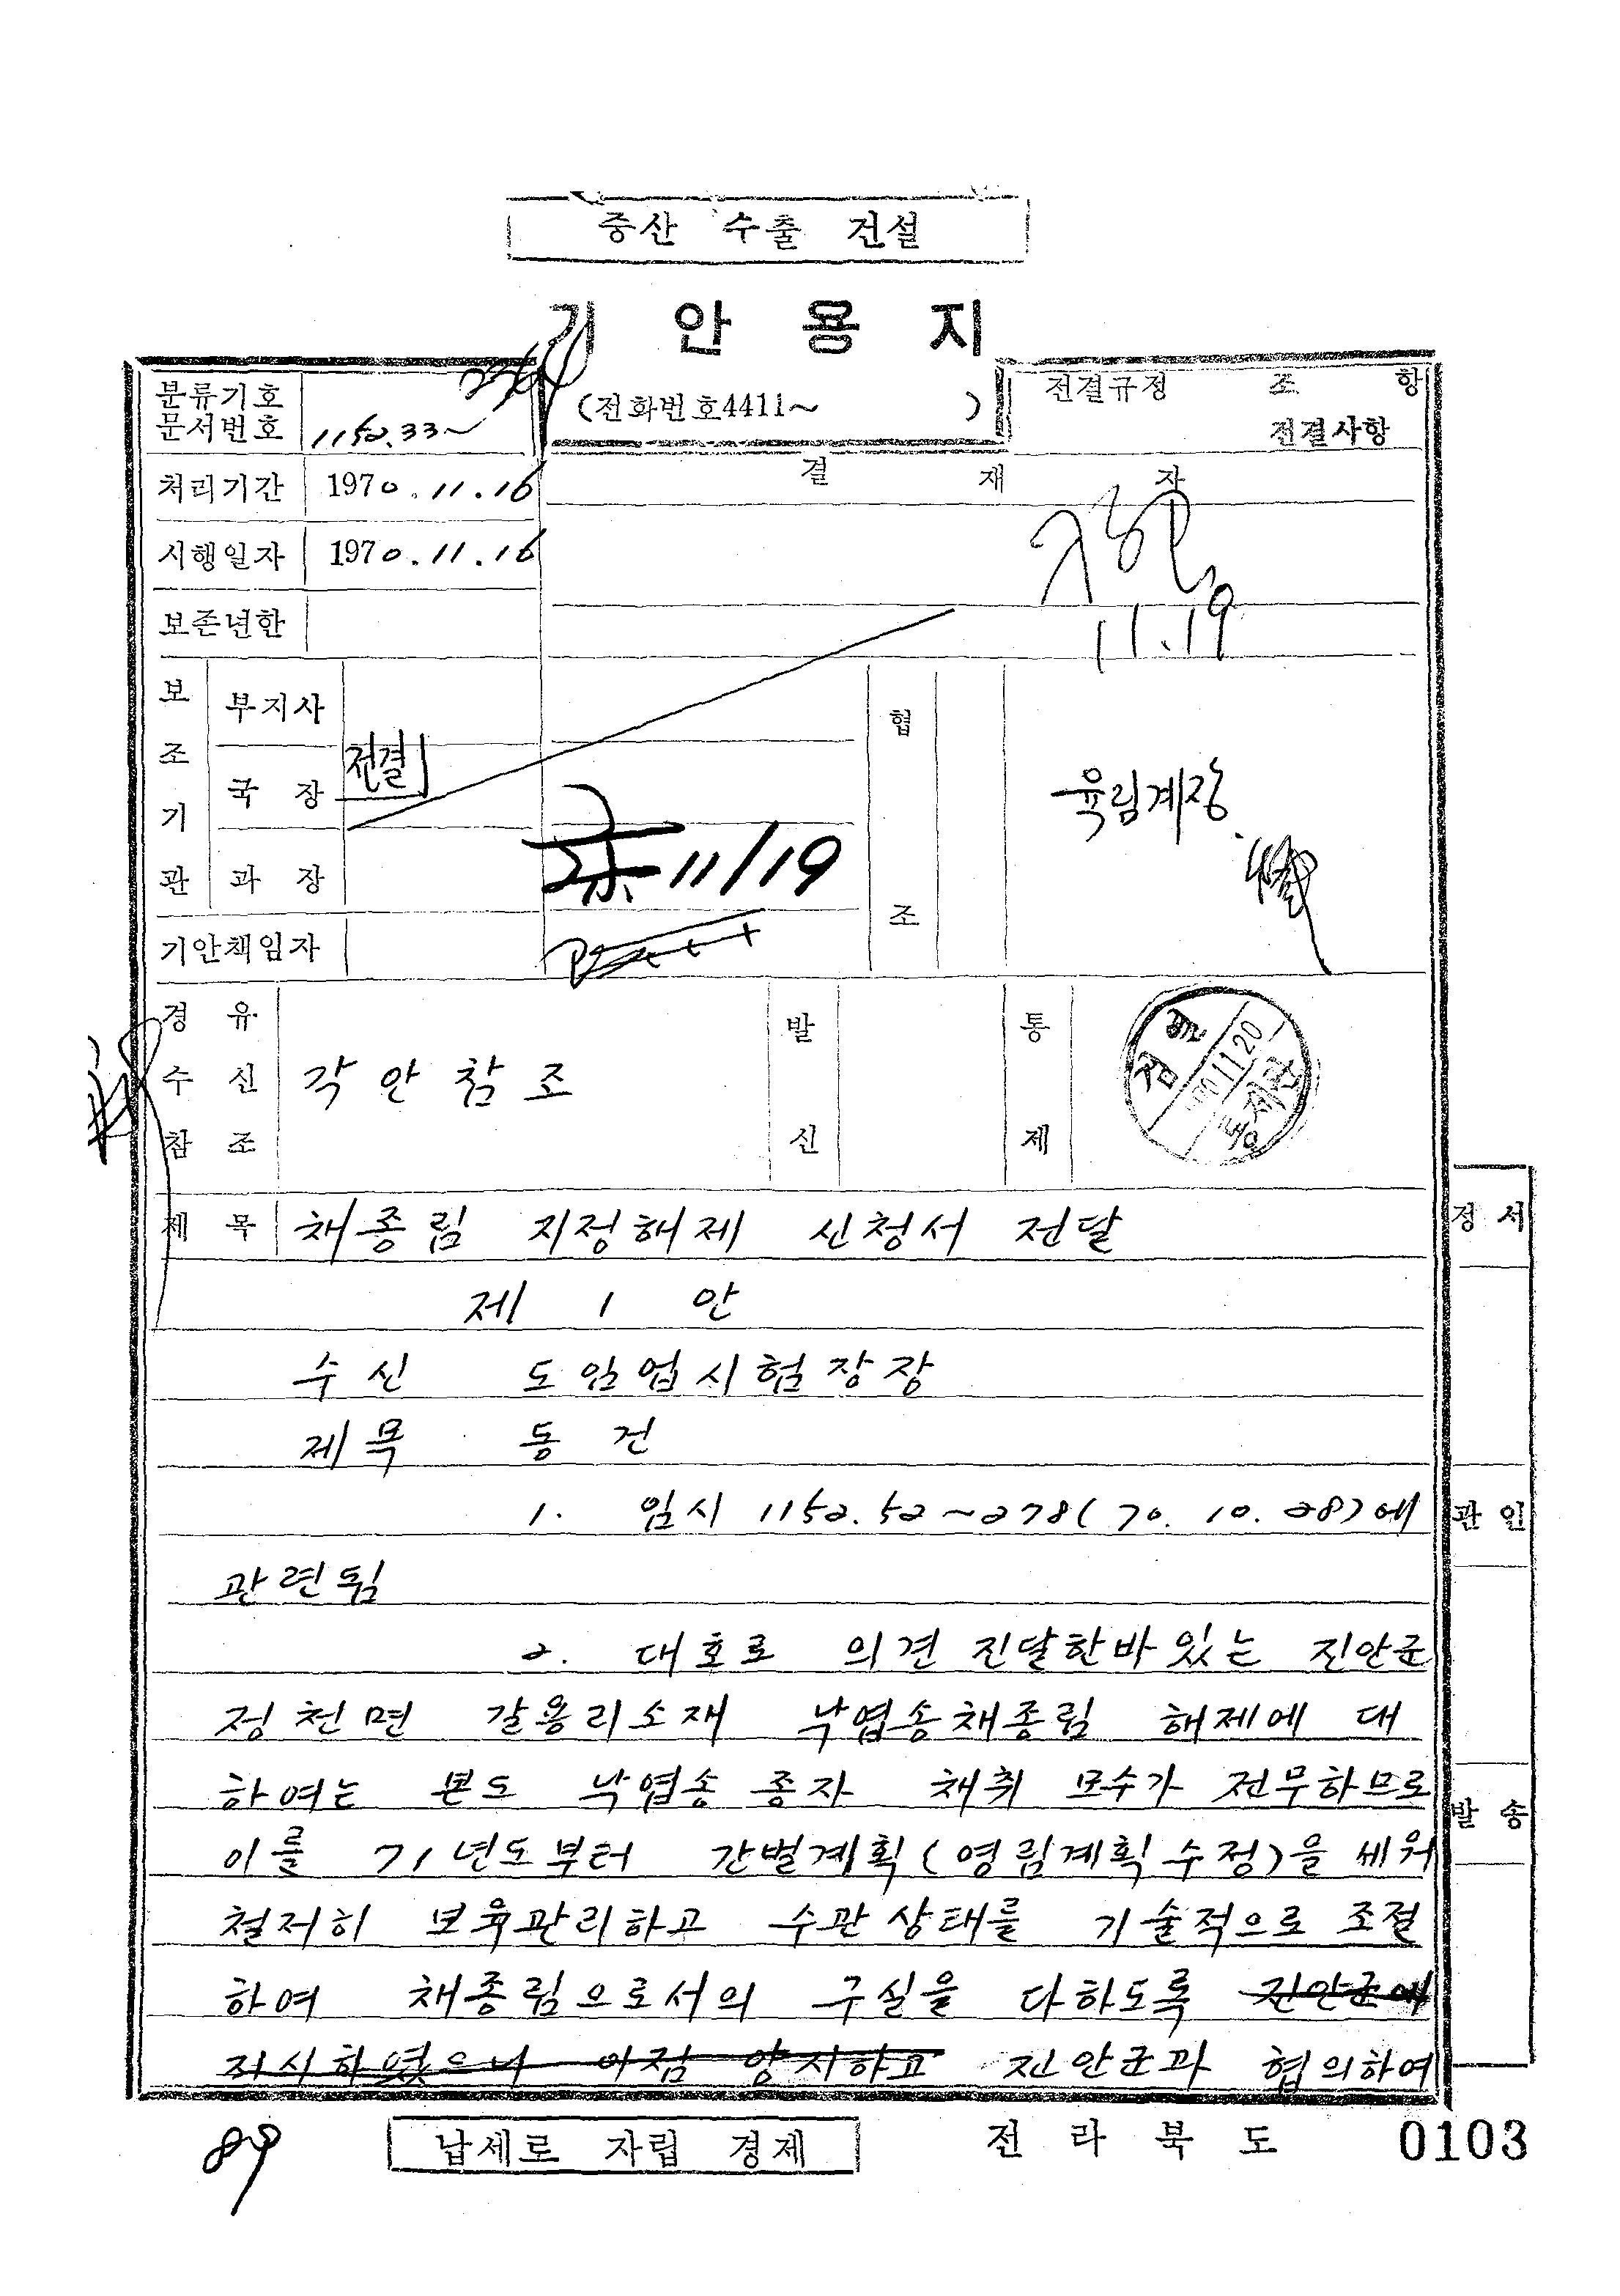 증산 수출 건설
기 안 용 지
분류기호
문서번호 1152.33~
(전화번호4411~ )
전결규정 조 항
전결사항
처리기간 1970.11.16
결 재 자
시행일자 1970.11.16
보존년한
11.19
보조기관
부지사
국 장 전결
과 장 11/19
기안책임자
협조
육림계장
경 유
수 신 각 안 참 조
참 조
발신
통제
검 열
11.20
제 목 채종림 지정해제 신청서 전달
정 서
제 1 안
수신 도임업시험장장
제목 동 건
1. 임시 1152.52~278(70.10.28)에
관 인
관련됨
2. 대호로 의견 진달한바 있는 진안군
정천면 갈용리소재 낙엽송채종림 해제에 대
하여는 본도 낙엽송 종자 채취 모수가 전무하므로
발 송
이를 71년도부터 간벌계획(영림계획수정)을 세워
철저히 보육관리하고 수관상태를 기술적으로 조절
하여 채종림으로서의 구실을 다하도록 진안군에
지시하였으니 이점 양지하고 진안군과 협의하여
89
납세로 자립 경제
전 라 북 도
0103